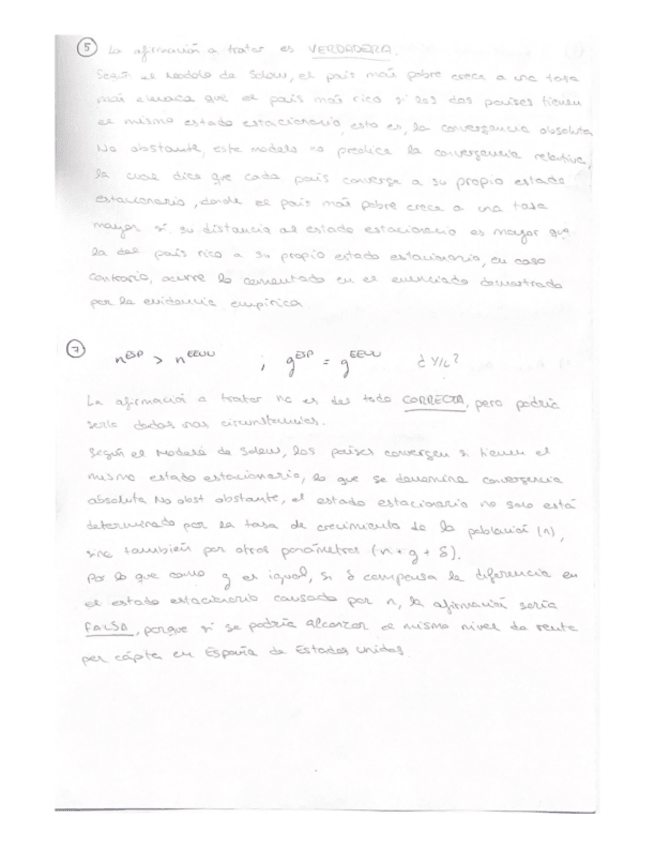 ⑤ La afirmación a tratar es VERDADERA.
Según el Modelo de Solow, el país más pobre crece a una tasa
más elevada que el país más rico si los dos países tienen
el mismo estado estacionario, esto es, la convergencia absoluta.
No obstante, este modelo no predice la convergencia relativa,
la cual dice que cada país converge a su propio estado
estacionario, donde el país más pobre crece a una tasa
mayor si su distancia al estado estacionario es mayor que
la del país rico a su propio estado estacionario, en caso
contrario, ocurre lo comentado en el enunciado demostrado
por la evidencia empírica.
⑦ n^ESP > n^EEUU ; g^ESP = g^EEUU ¿Y/L?
La afirmación a tratar no es del todo CORRECTA, pero podría
serlo dadas unas circunstancias.
Según el Modelo de Solow, los países convergen si tienen el
mismo estado estacionario, lo que se denomina convergencia
absoluta. No obst obstante, el estado estacionario no solo está
determinado por la tasa de crecimiento de la población (n),
sino también por otros parámetros (n + g + δ).
Por lo que como g es igual, si δ compensa la diferencia en
el estado estacionario causado por n, la afirmación sería
FALSA, porque si se podría alcanzar el mismo nivel de renta
per cápita en España de Estados Unidos.